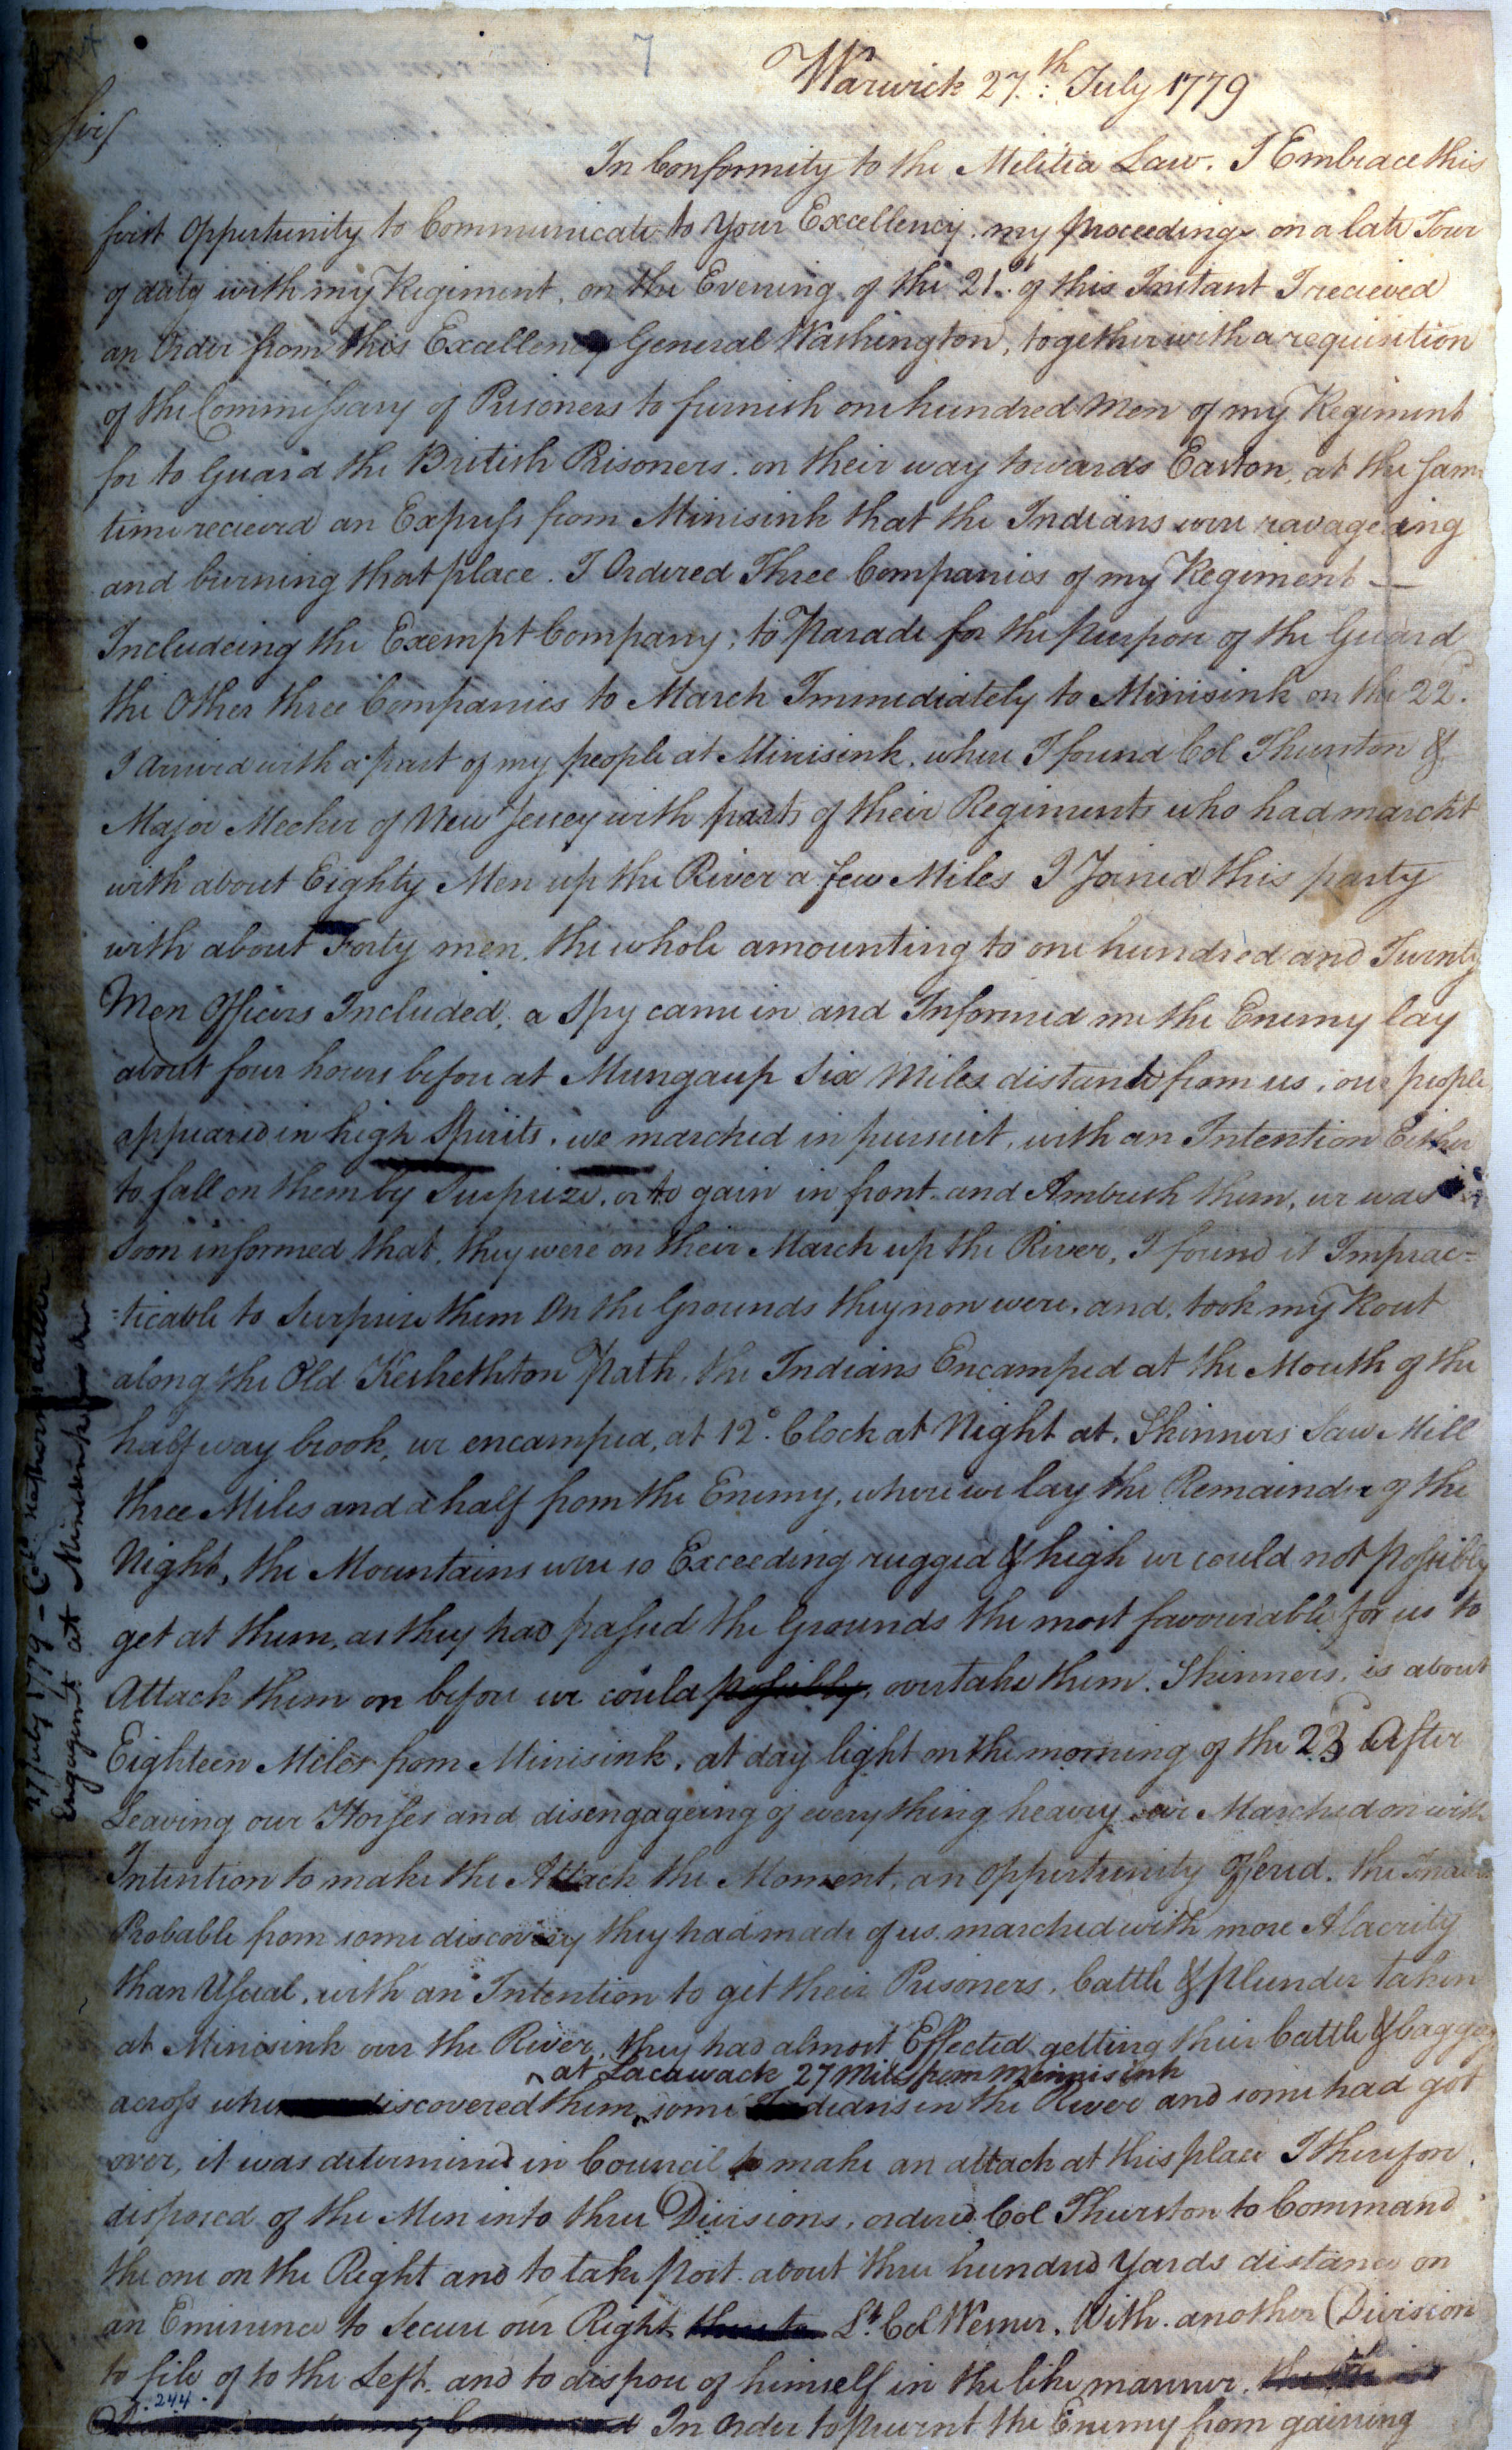 7
Warwick 27.th July 1779
Sir
In Conformity to the Militia Law. I Embrace this
first Oppertunity to Communicate to Your Excellency. my proceedings on a late Tour
of duty with my Regiment, on the Evening of the 21st of this Instant I recieved
an Order from his Excellency General Washington, together with a requisition
of the Commissary of Prisoners to furnish one hundred Men of my Regiment
for to Guard the British Prisoners. on their way towards Easton, at the same
time recieved an Express from Minisink that the Indians were ravageing
and burning that place. I Ordered Three Companies of my Regiment —
Includeing the Exempt Company, to Parade for the purpose of the Guard
the Other three Companies to March Immediately to Minisink on the 22d.
I Arrived with a part of my people at Minisink. where I found Col Thurston &
Major Meeker of New Jersey with parts of their Regiments who had marcht
with about Eighty Men up the River a few Miles I Joined this party
with about Forty men. the whole amounting to one hundred and Twenty
Men Officers Included. a Spy came in and Informed me the Enemy lay
about four hours before at Mungaup Six Miles distant from us, our people
appeared in high Spirits. we marched in pursuit, with an Intention Either
to fall on them by Surprize. or to gain in front and Ambush them, we was
Soon informed that, they were on their March up the River, I found it Imprac=
=ticable to Surprise them On the Grounds they now were. and. took my Rout
along the Old Keshethton Path. the Indians Encamped at the Mouth of the
half way brook, we encamped, at 12 o. Clock at Night at. Skinners Saw Mill
three Miles and a half from the Enemy, where we lay the Remainder of the
Night, the Mountains were so Exceeding rugged & high we could not possibly
get at them, as they had passed the Grounds the most favourable for us to
Attack them on before we could possibly, overtake them. Skinners. is about
Eighteen Miles from Minisink. at day light on the morning of the 23 After
Leaving our Horses and disengageing of every thing heavy we Marched on with
Intention to make the Attack the Moment, an oppertunity Offered. the Indians
Probable from some discovery they had made of us. marched with more Alacrity
than Usual. with an Intention to get their Prisoners, Cattle & Plunder taken
at Minisink over the River. they had almost Effected getting their Cattle & baggage
^ at Lacawack 27 Miles from Minnisink
across when discovered them, some Indians in the River and some had got
over, it was determined in Council to make an attack at this place I therefore
disposed of the Men into three Divisions, ordered. Col Thurston to Command
the one on the Right and to take Post about three hundred Yards distance on
an Eminence to Secure our Right Lt. Col Wesner. With another Division
to file of to the Left and to dispose of himself in the like manner.
In Order to prevent the Enemy from gaining
244.
27 July 1779 — Col. Hathorn's letter
Engagement at Minisink